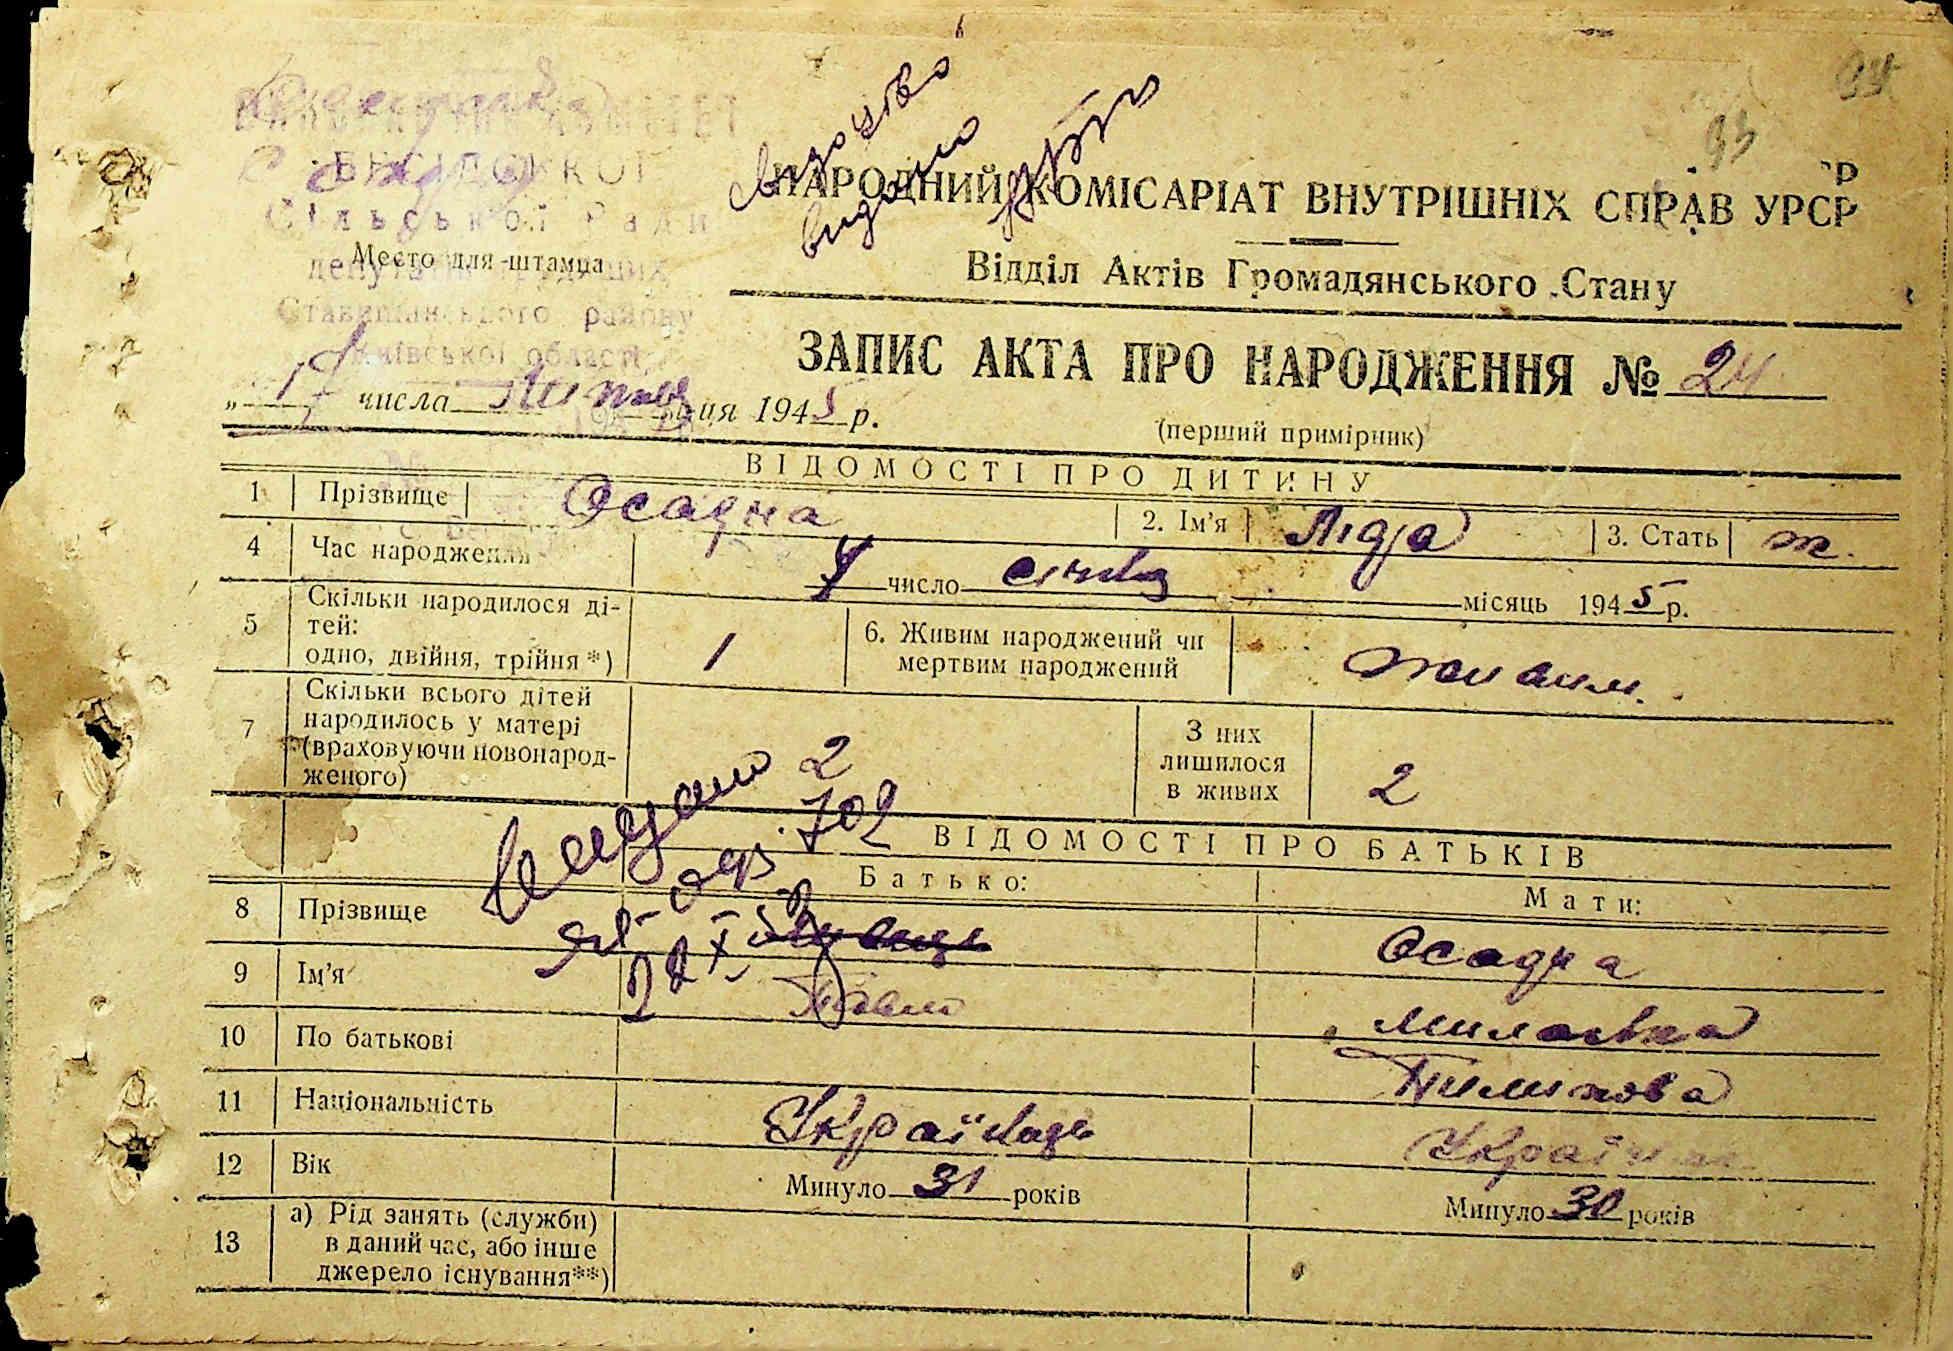 ВИКОНАВЧИЙ КОМІТЕТ
БЕСІДСЬКОЇ
Сільської Ради
депутатів трудящих
Ставищанського району
Київської області
Место для штампа
Свідоцтво
видано
33
НАРОДНИЙ КОМІСАРІАТ ВНУТРІШНІХ СПРАВ УРСР
Відділ Актів Громадянського Стану
ЗАПИС АКТА ПРО НАРОДЖЕННЯ № 24
„ 17 числа Липня місяця 1945 р.
(перший примірник)
ВІДОМОСТІ ПРО ДИТИНУ
1 Прізвище Осадча 2. Ім'я Лідія 3. Стать ж.
4 Час народження число січня місяць 1945 р.
5 Скільки народилося ді-
тей:
одно, двійня, трійня *) 1 6. Живим народжений чи
мертвим народжений живим.
7 Скільки всього дітей
народилось у матері
(враховуючи новонарод-
женого) 2 З них
лишилося
в живих 2
видано
702
ВІДОМОСТІ ПРО БАТЬКІВ
Батько: Мати:
8 Прізвище Осадча
9 Ім'я Павло
10 По батькові Пилипова
11 Національність Українець Українка
12 Вік Минуло 31 років Минуло 30 років
13 а) Рід занять (служби)
в даний час, або інше
джерело існування **)